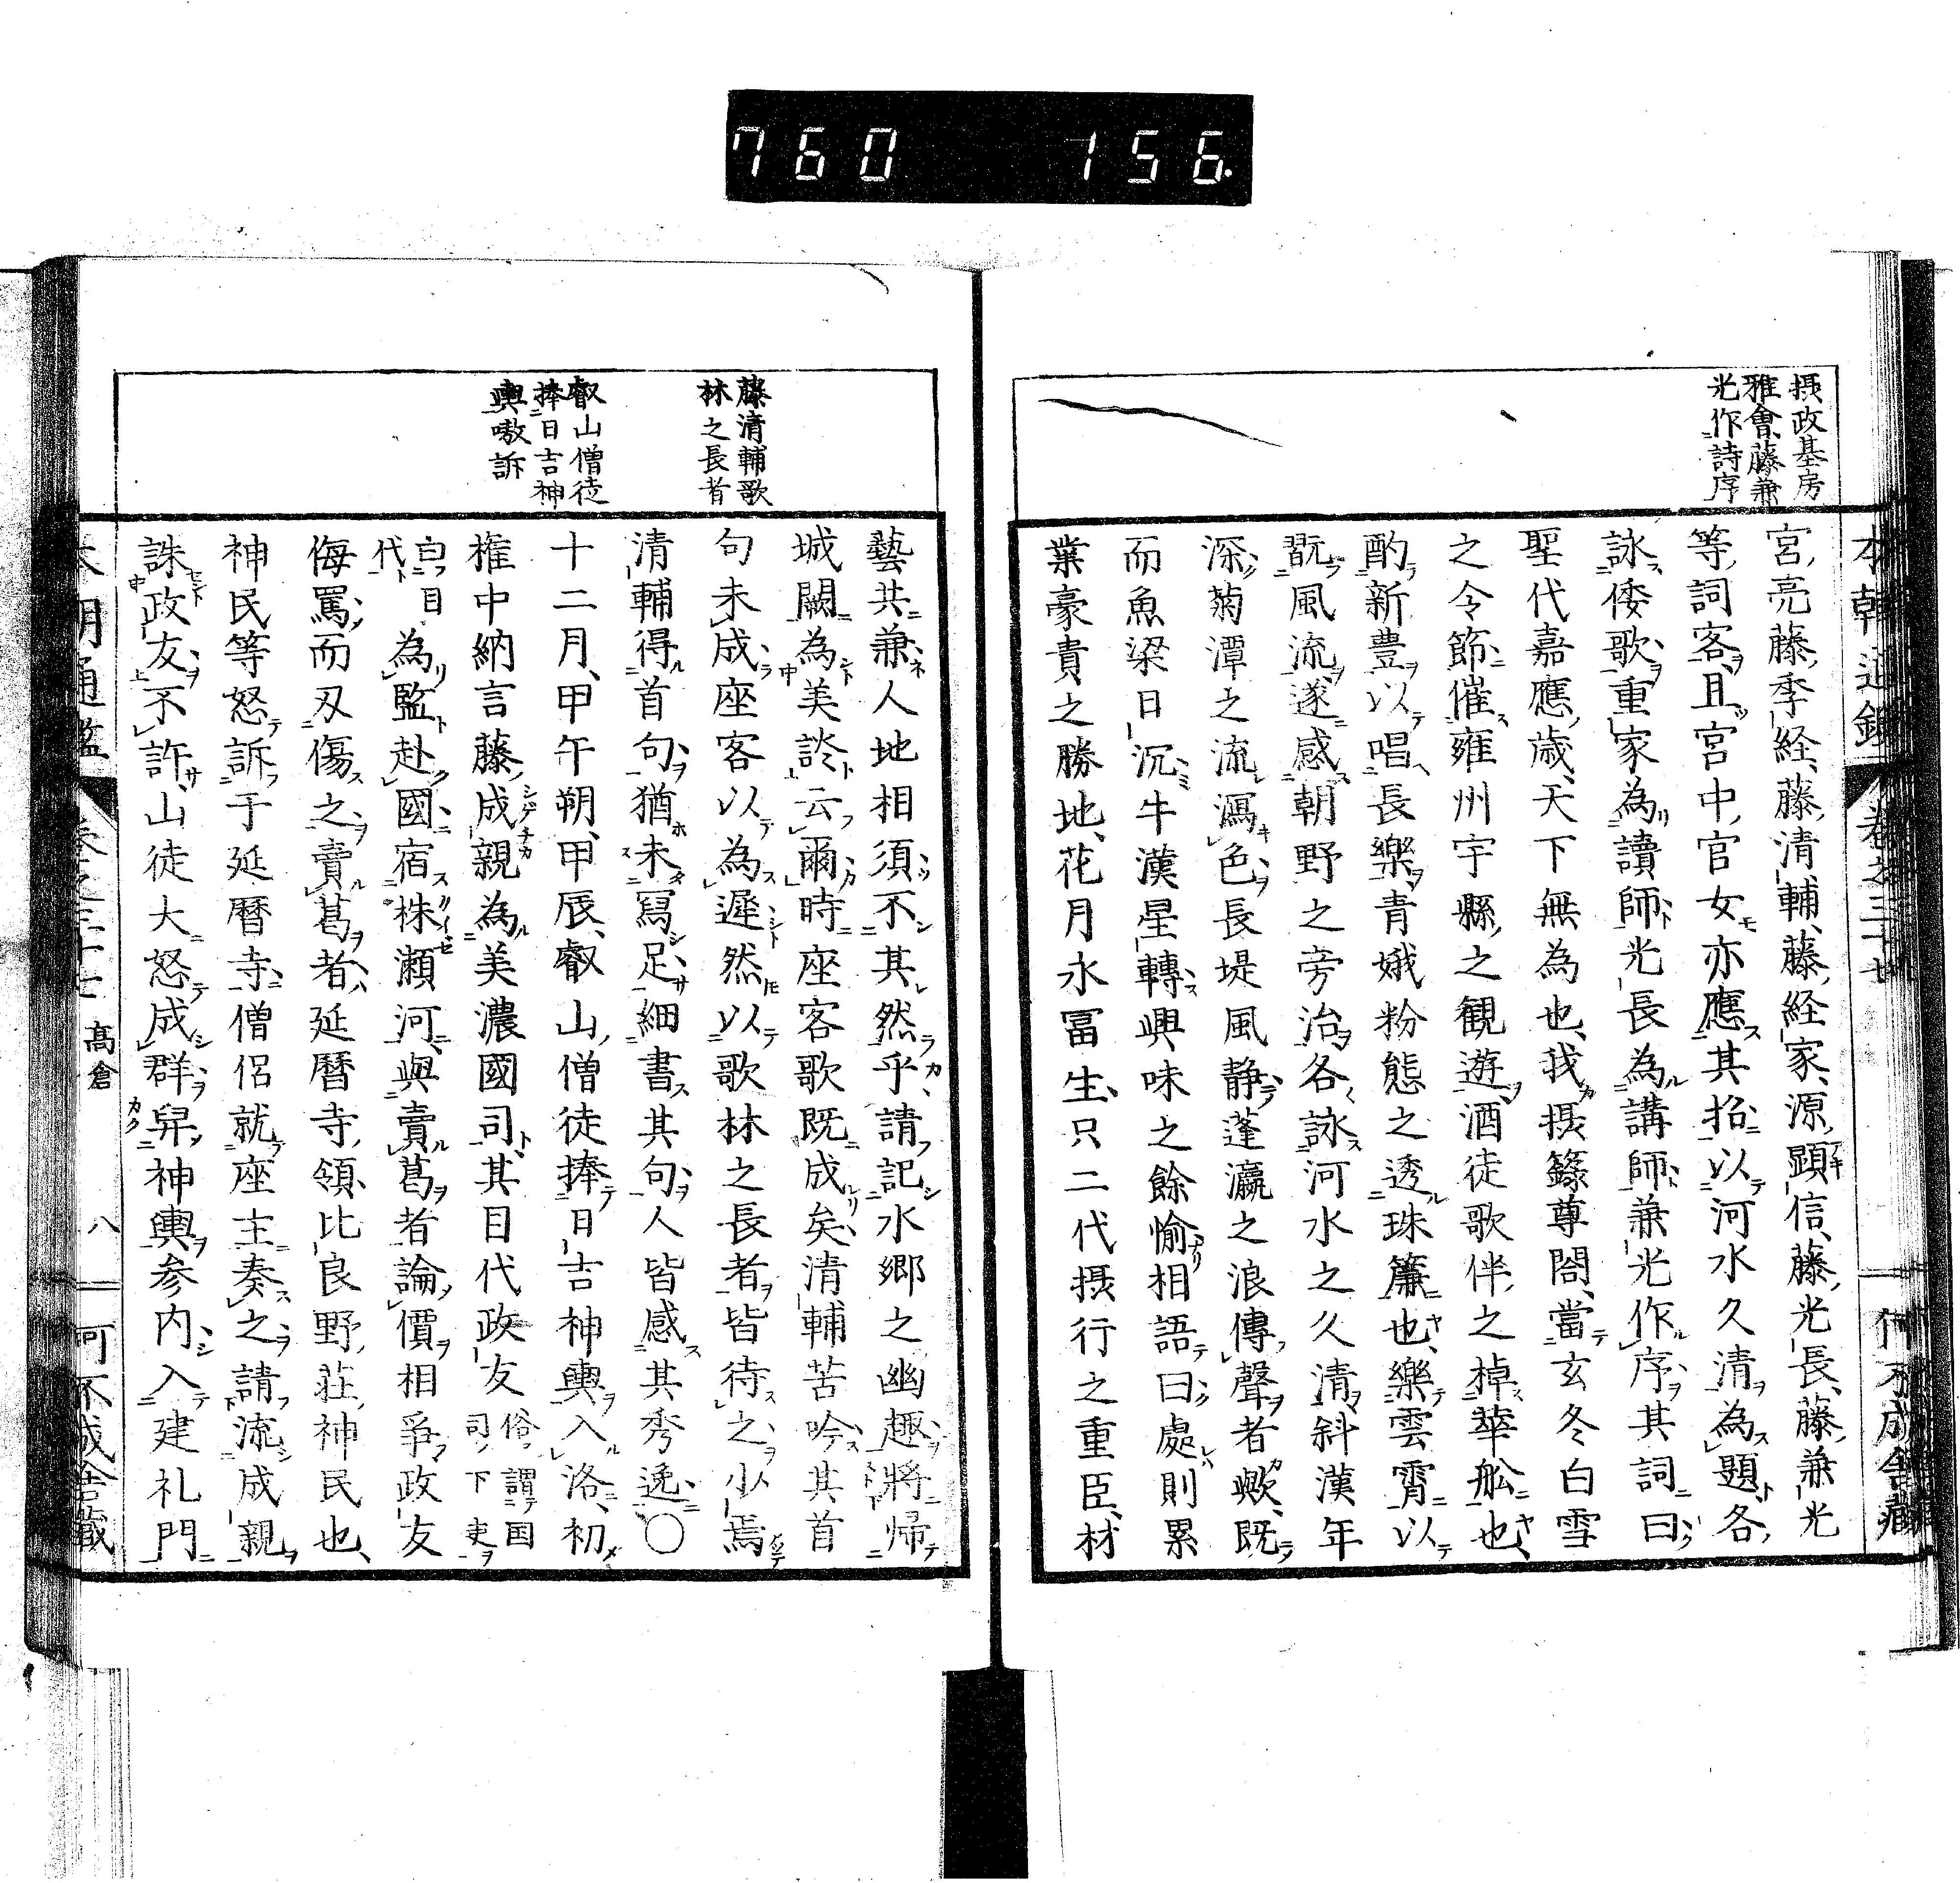 760 156.
摂政基房
雅會藤兼
光作詩序
宮亮藤季経藤清輔藤経家源顕信藤光長藤兼光
等詞客且宮中官女亦應其招以河水久清為題各
詠倭歌重家為讀師光長為講師兼光作序其詞曰
聖代嘉應歳天下無為也我摂籙尊閤當玄冬白雪
之令節催雍州宇縣之観遊酒徒歌伴之棹華舩也
酌新豊以唱長樂青娥粉態之透珠簾也樂雲霄以
翫風流遂感朝野之旁治各詠河水之久清斜漢年
深菊潭之流瀉色長堤風静蓬瀛之浪傳聲者歟既
而魚梁日沉牛漢星轉興味之餘愉相語曰處則累
葉豪貴之勝地花月水冨生只二代摂行之重臣材
藤清輔歌
林之長者
叡山僧徒
捧日吉神
輿嗷訴
藝共兼人地相須不其然乎請記水郷之幽趣將帰
城闕為美談云爾時座客歌既成矣清輔苦吟其首
句未成座客以為遲然以歌林之長者皆待之少焉
清輔得首句猶未寫足細書其句人皆感其秀逸〇
十二月甲午朔甲辰叡山僧徒捧日吉神輿入洛初
権中納言藤成親為美濃國司其目代政友俗謂国司下吏
曰目代為監赴國宿株瀬河與賣葛者論價相爭政友
侮罵而刃傷之賣葛者延暦寺領比良野荘神民也
神民等怒訴于延暦寺僧侶就座主奏之請流成親
誅政友不許山徒大怒成群舁神輿参内入建礼門
髙倉
八